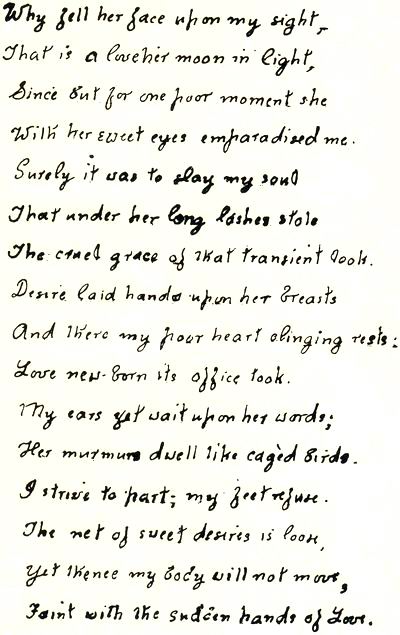 Why fell her face upon my sight,
That is a lovelier moon in light,
Since but for one poor moment she
With her sweet eyes emparadised me.
Surely it was to slay my soul
That under her long lashes stole
The cruel grace of that transient look.
Desire laid hands upon her breasts
And there my poor heart clinging rests:
Love new-born its office took.
My ears yet wait upon her words;
Her murmurs dwell like cagèd birds.
I strive to part; my feet refuse.
The net of sweet desires is loose,
Yet thence my body will not move,
Faint with the sudden hands of Love.